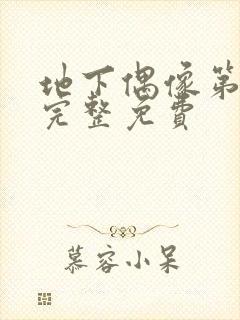 地下偶像第
完整免费
慕容小呆